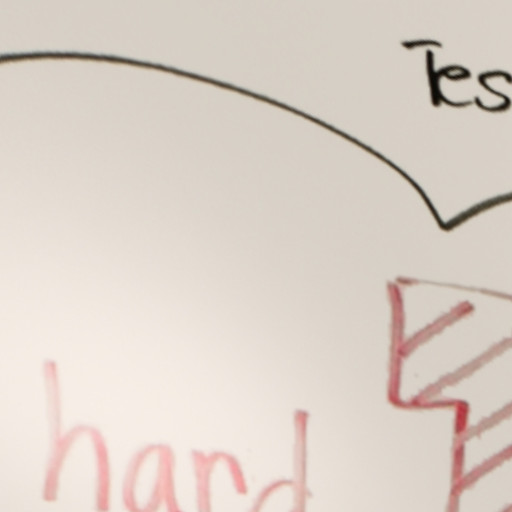 Tes
hard